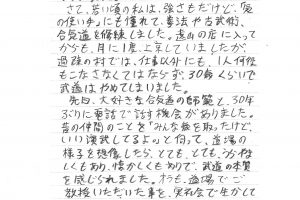 さて、若い頃の私は、強さもだけど、「気
の使い手」にも憧れて、拳法や古武術、
合気道を修練しました。遠山の店に入って
からも、月に1度上京していましたが、
過疎の村では、仕事以外にも、1人何役
もこなさなくてはならず、30歳くらいで
武道はやめてしまいました。
先日、大好きな合気道の師範と、30年
ぶりに電話で話す機会がありました。
昔の仲間のことを「みんな歳を取ったけど、
いい演武してるよ。」と伺って、道場の
様子を想像したら、とても、とても、うらやま
しくもあり、懐かしくもあり、武道の本質
を感じられました。わたしも、道場でご
教授いただいた事を、実社会で生かして